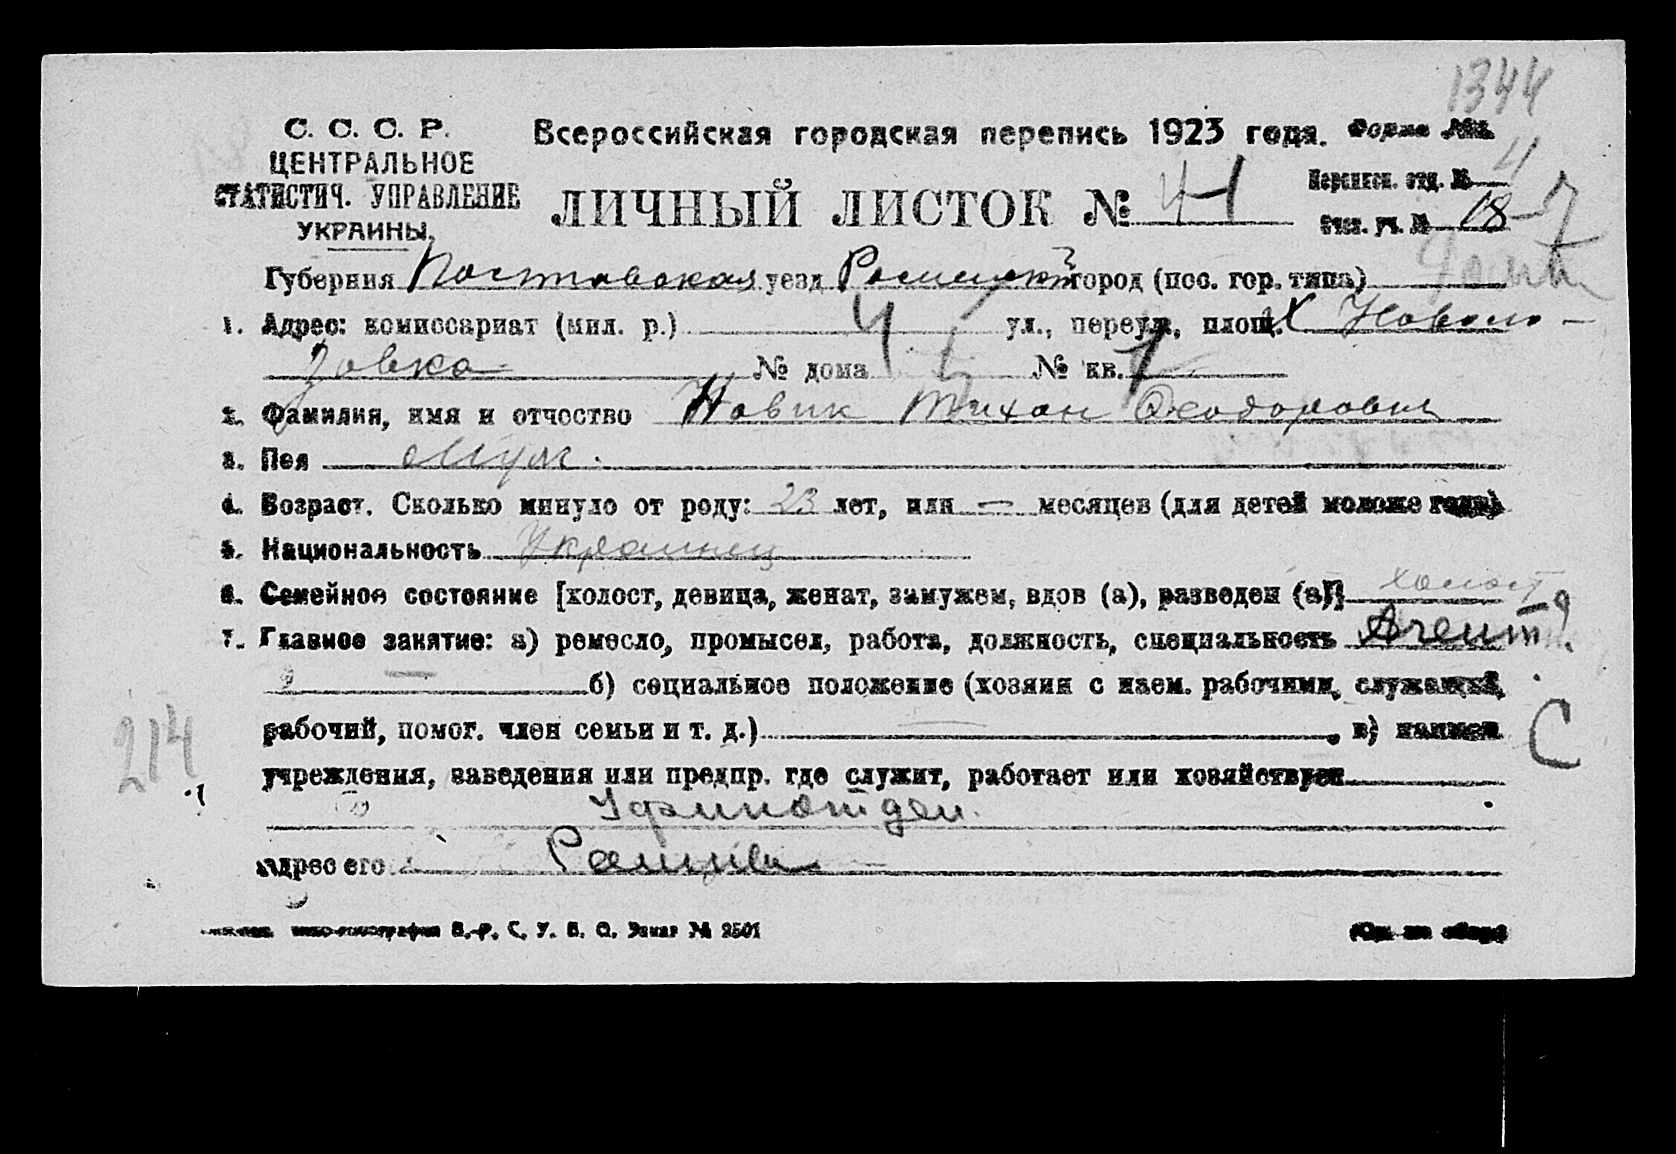 1344
С. С. С. Р.
ЦЕНТРАЛЬНОЕ
СТАТИСТИЧ. УПРАВЛЕНИЕ
УКРАИНЫ.
Всероссийская городская перепись 1923 года. Форма
ЛИЧНЫЙ ЛИСТОК № 41
Переписн. отд. № 4
Счет. уч. № 18
Губерния уезд город (пос. гор. типа)
1. Адрес: комиссариат (мил. р.) 4 ул., переул., площ. Х
№ дома № кв. 1
2. Фамилия, имя и отчество Новик Тихон Феодорович
3. Пол Муж.
4. Возраст. Сколько минуло от роду: 23 лет, или — месяцев (для детей моложе года)
5. Национальность Украинец
6. Семейное состояние [холост, девица, женат, замужем, вдов (а), разведен (а)] холост
7. Главное занятие: а) ремесло, промысел, работа, должность, специальность Агент
— б) социальное положение (хозяин с наем. рабочими, служащий,
рабочий, помог. член семьи и т. д.) — в) наимен.
учреждения, заведения или предпр. где служит, работает или хозяйствует
Уфинотдел.
Адрес его
С
214
В. С. У. В. О. Заказ № 2501